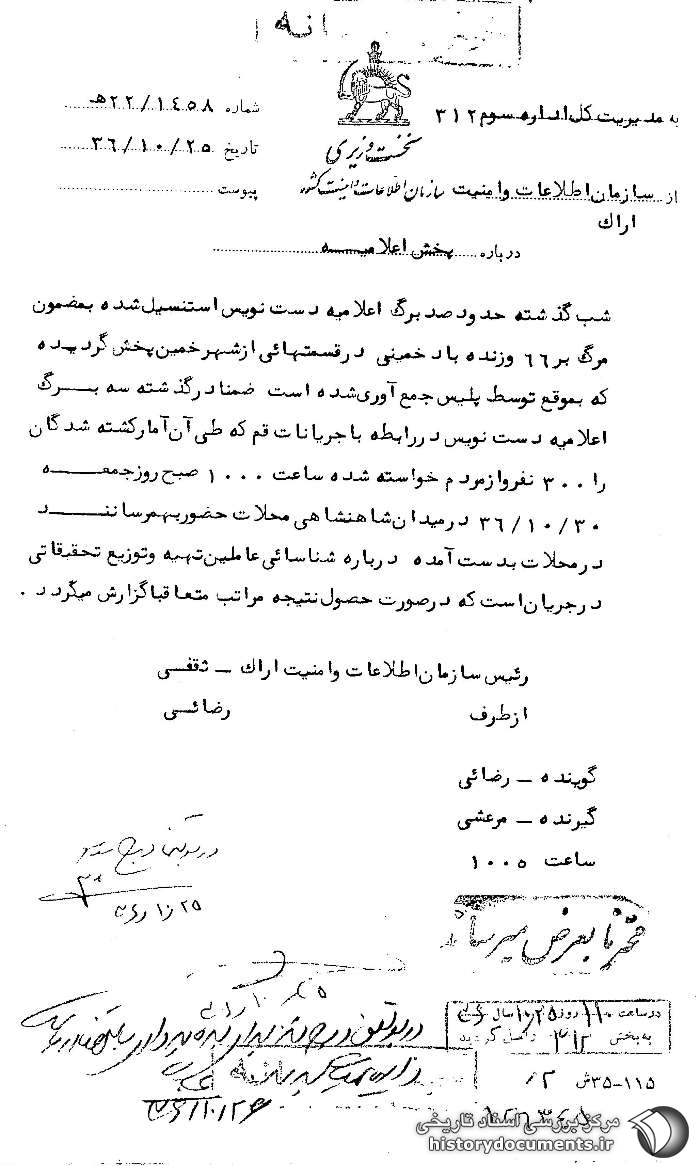 به مدیریت کل اداره سوم ۳۱۲
شماره ۲۲/۱۴۵۸ هـ
نخست وزیری
تاریخ ۳۶/۱۰/۲۵
از سازمان اطلاعات و امنیت سازمان اطلاعات و امنیت کشور
پیوست
اراك
درباره پخش اعلامیه
شب گذشته حدود صد برگ اعلامیه دست نویس استنسیل شده بمضمون
مرگ بر ۶۶ و زنده باد خمینی در قسمتهائی از شهر خمین پخش گردیده
که بموقع توسط پلیس جمع آوری شده است ضمنا در گذشته سه برگ
اعلامیه دست نویس در رابطه با جریانات قم که طی آن آمار کشته شدگان
را ۳۰۰ نفر و از مردم خواسته شده ساعت ۱۰۰۰ صبح روز جمعه
۳۶/۱۰/۳۰ در میدان شاهنشاهی محلات حضور بهم رسانند
در محلات بدست آمده درباره شناسائی عاملین تهیه و توزیع تحقیقاتی
در جریان است که در صورت حصول نتیجه مراتب متعاقبا گزارش میگردد .
رئیس سازمان اطلاعات و امنیت اراك – ثقفی
از طرف رضائی
گوینده – رضائی
گیرنده – مرعشی
ساعت ۱۰۰۵
محترما بعرض میرساند
در ساعت ۱۱۰۰ روز ۱۰/۲۵ سال ۳۶
به بخش ۳۱۲ واصل گردید
۳۵-۱۱۵ش
مرکز بررسی اسناد تاریخی
historydocuments.ir